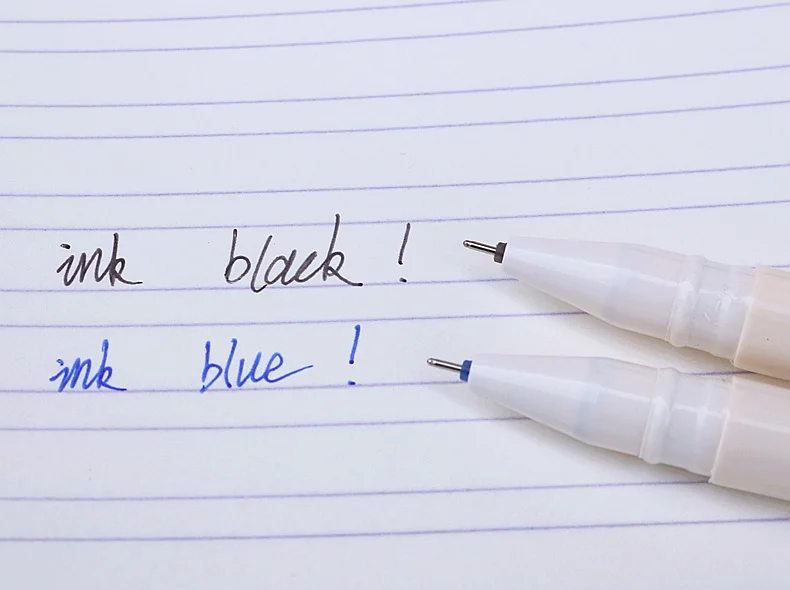 ink black !
ink blue !